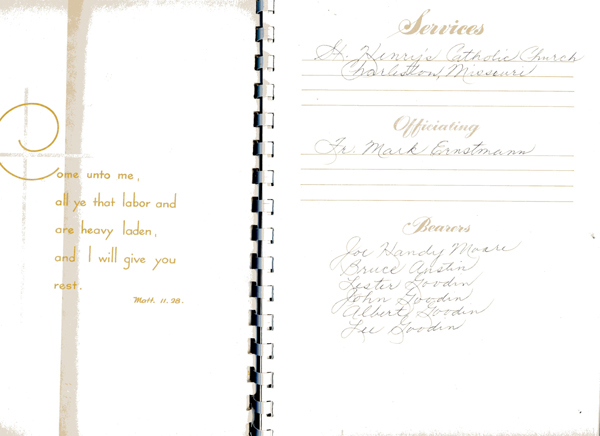 Come unto me,
all ye that labor and
are heavy laden,
and I will give you
rest.
Matt. 11. 28.
Services
St. Henry's Catholic Church
Charleston, Missouri
Officiating
Fr. Mark Ernstmann
Bearers
Joe Handy Moore
Bruce Austin
Lester Goodin
John Goodin
Albert Goodin
Lee Goodin